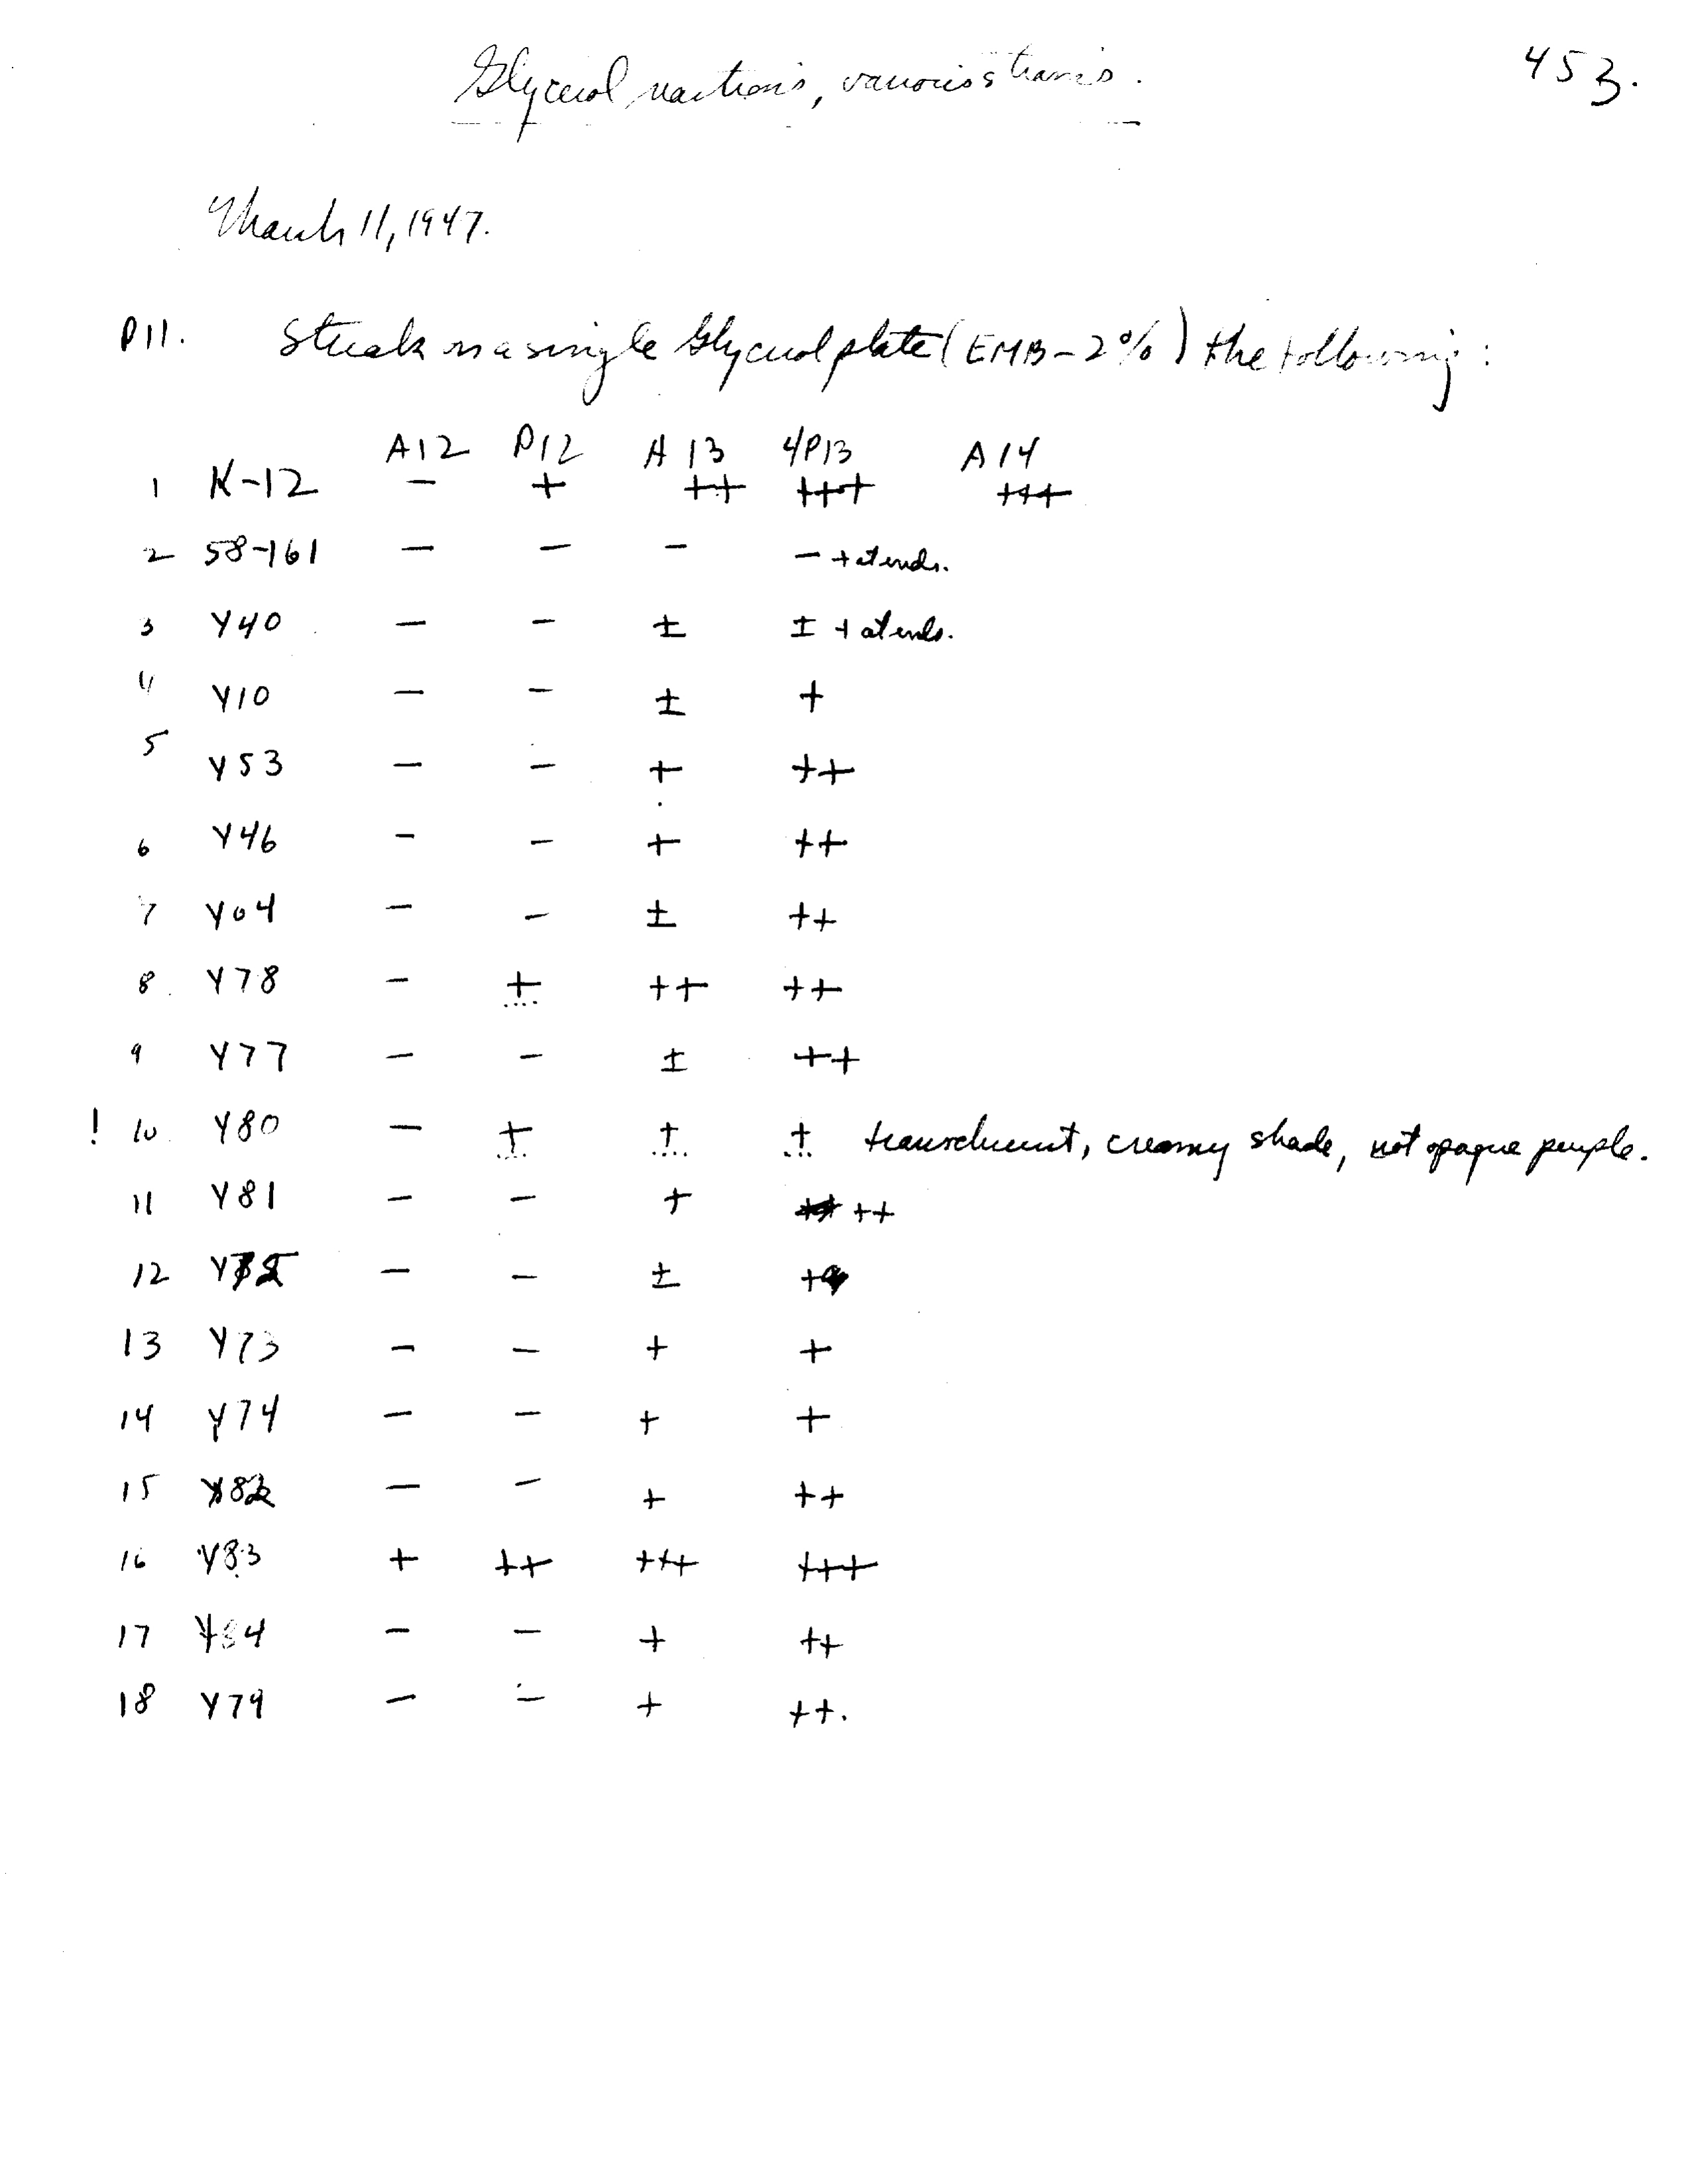 Glycerol reactions, various strains. 453.
March 11, 1947.
P11. Streak on a single Glycerol plate (EMB-2%) the following:
A12 P12 A13 4P13 A14
1 K-12 − + ++ +++ +++
2 58-161 − − − − + at ends.
3 Y40 − − ± ± + at ends.
4 Y10 − − ± +
5 Y53 − − + ++
6 Y46 − − + ++
7 Y64 − − ± ++
8 Y78 − + ++ ++
9 Y77 − − ± ++
! 10 Y80 − + + + translucent, creamy shade, not opaque purple.
11 Y81 − − + ++
12 − − ± +
13 Y73 − − + +
14 Y74 − − + +
15 − − + ++
16 Y83 + ++ +++ +++
17 Y84 − − + ++
18 Y79 − − + ++.